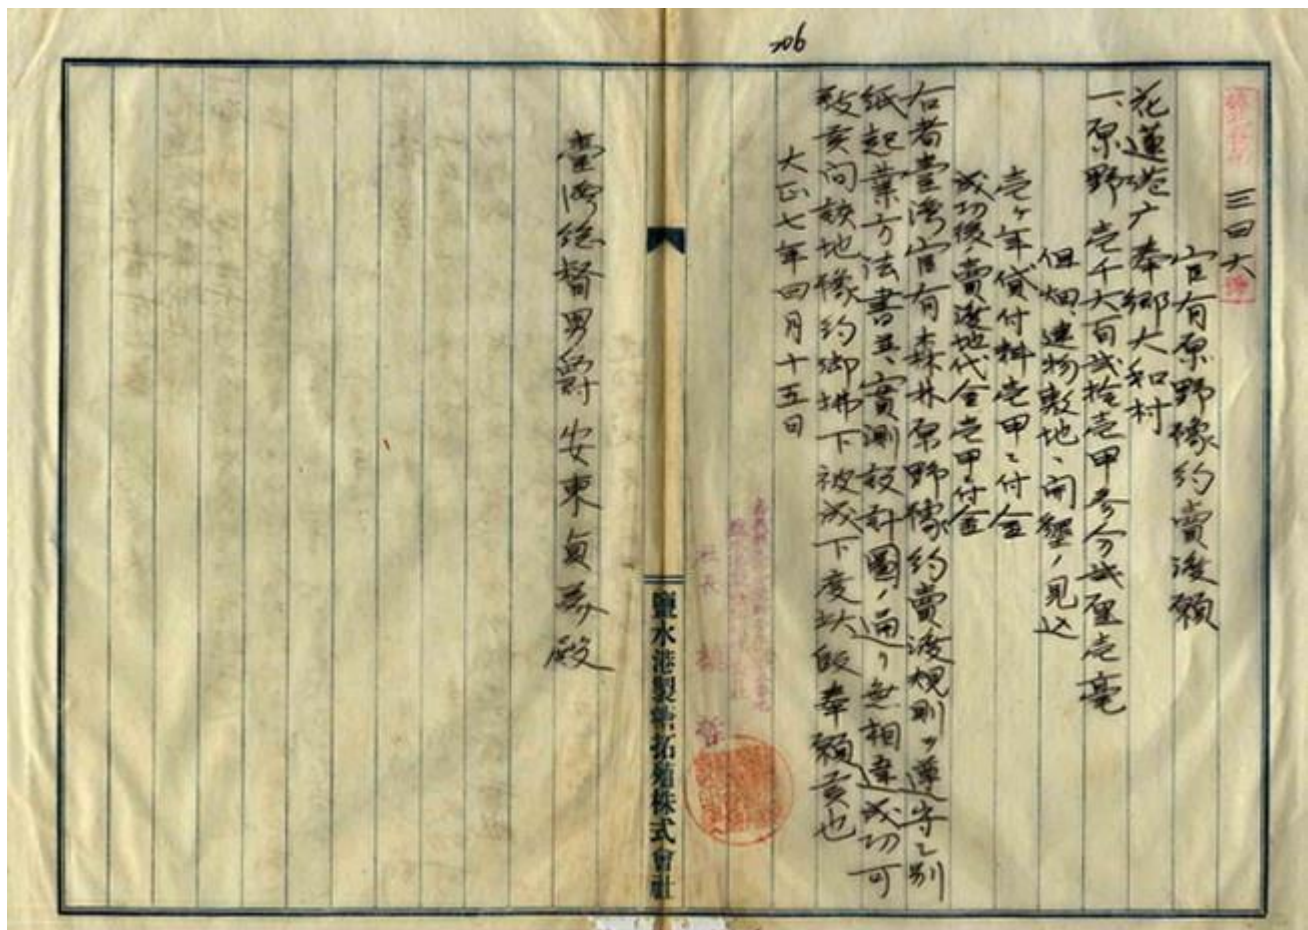 206
三四六
官有原野豫約賣渡願
花蓮港廳奉鄉大和村
一、原野 壱千六百弐拾壱甲参分弐厘壱毫
但畑、建物敷地、開墾ノ見込
壱ヶ年貸付料壱甲ニ付金
成功後、賣渡地代金壱甲ニ付金
右者臺灣官有森林原野豫約賣渡規則ヲ遵守シ別
紙起業方法書並、實測設計圖ノ通リ無相違成功可
致候間該地豫約御拂下被成下度此段奉願候也
大正七年四月十五日
社長 槇 哲
臺灣總督男爵 安東貞美殿
鹽水港製糖拓殖株式會社